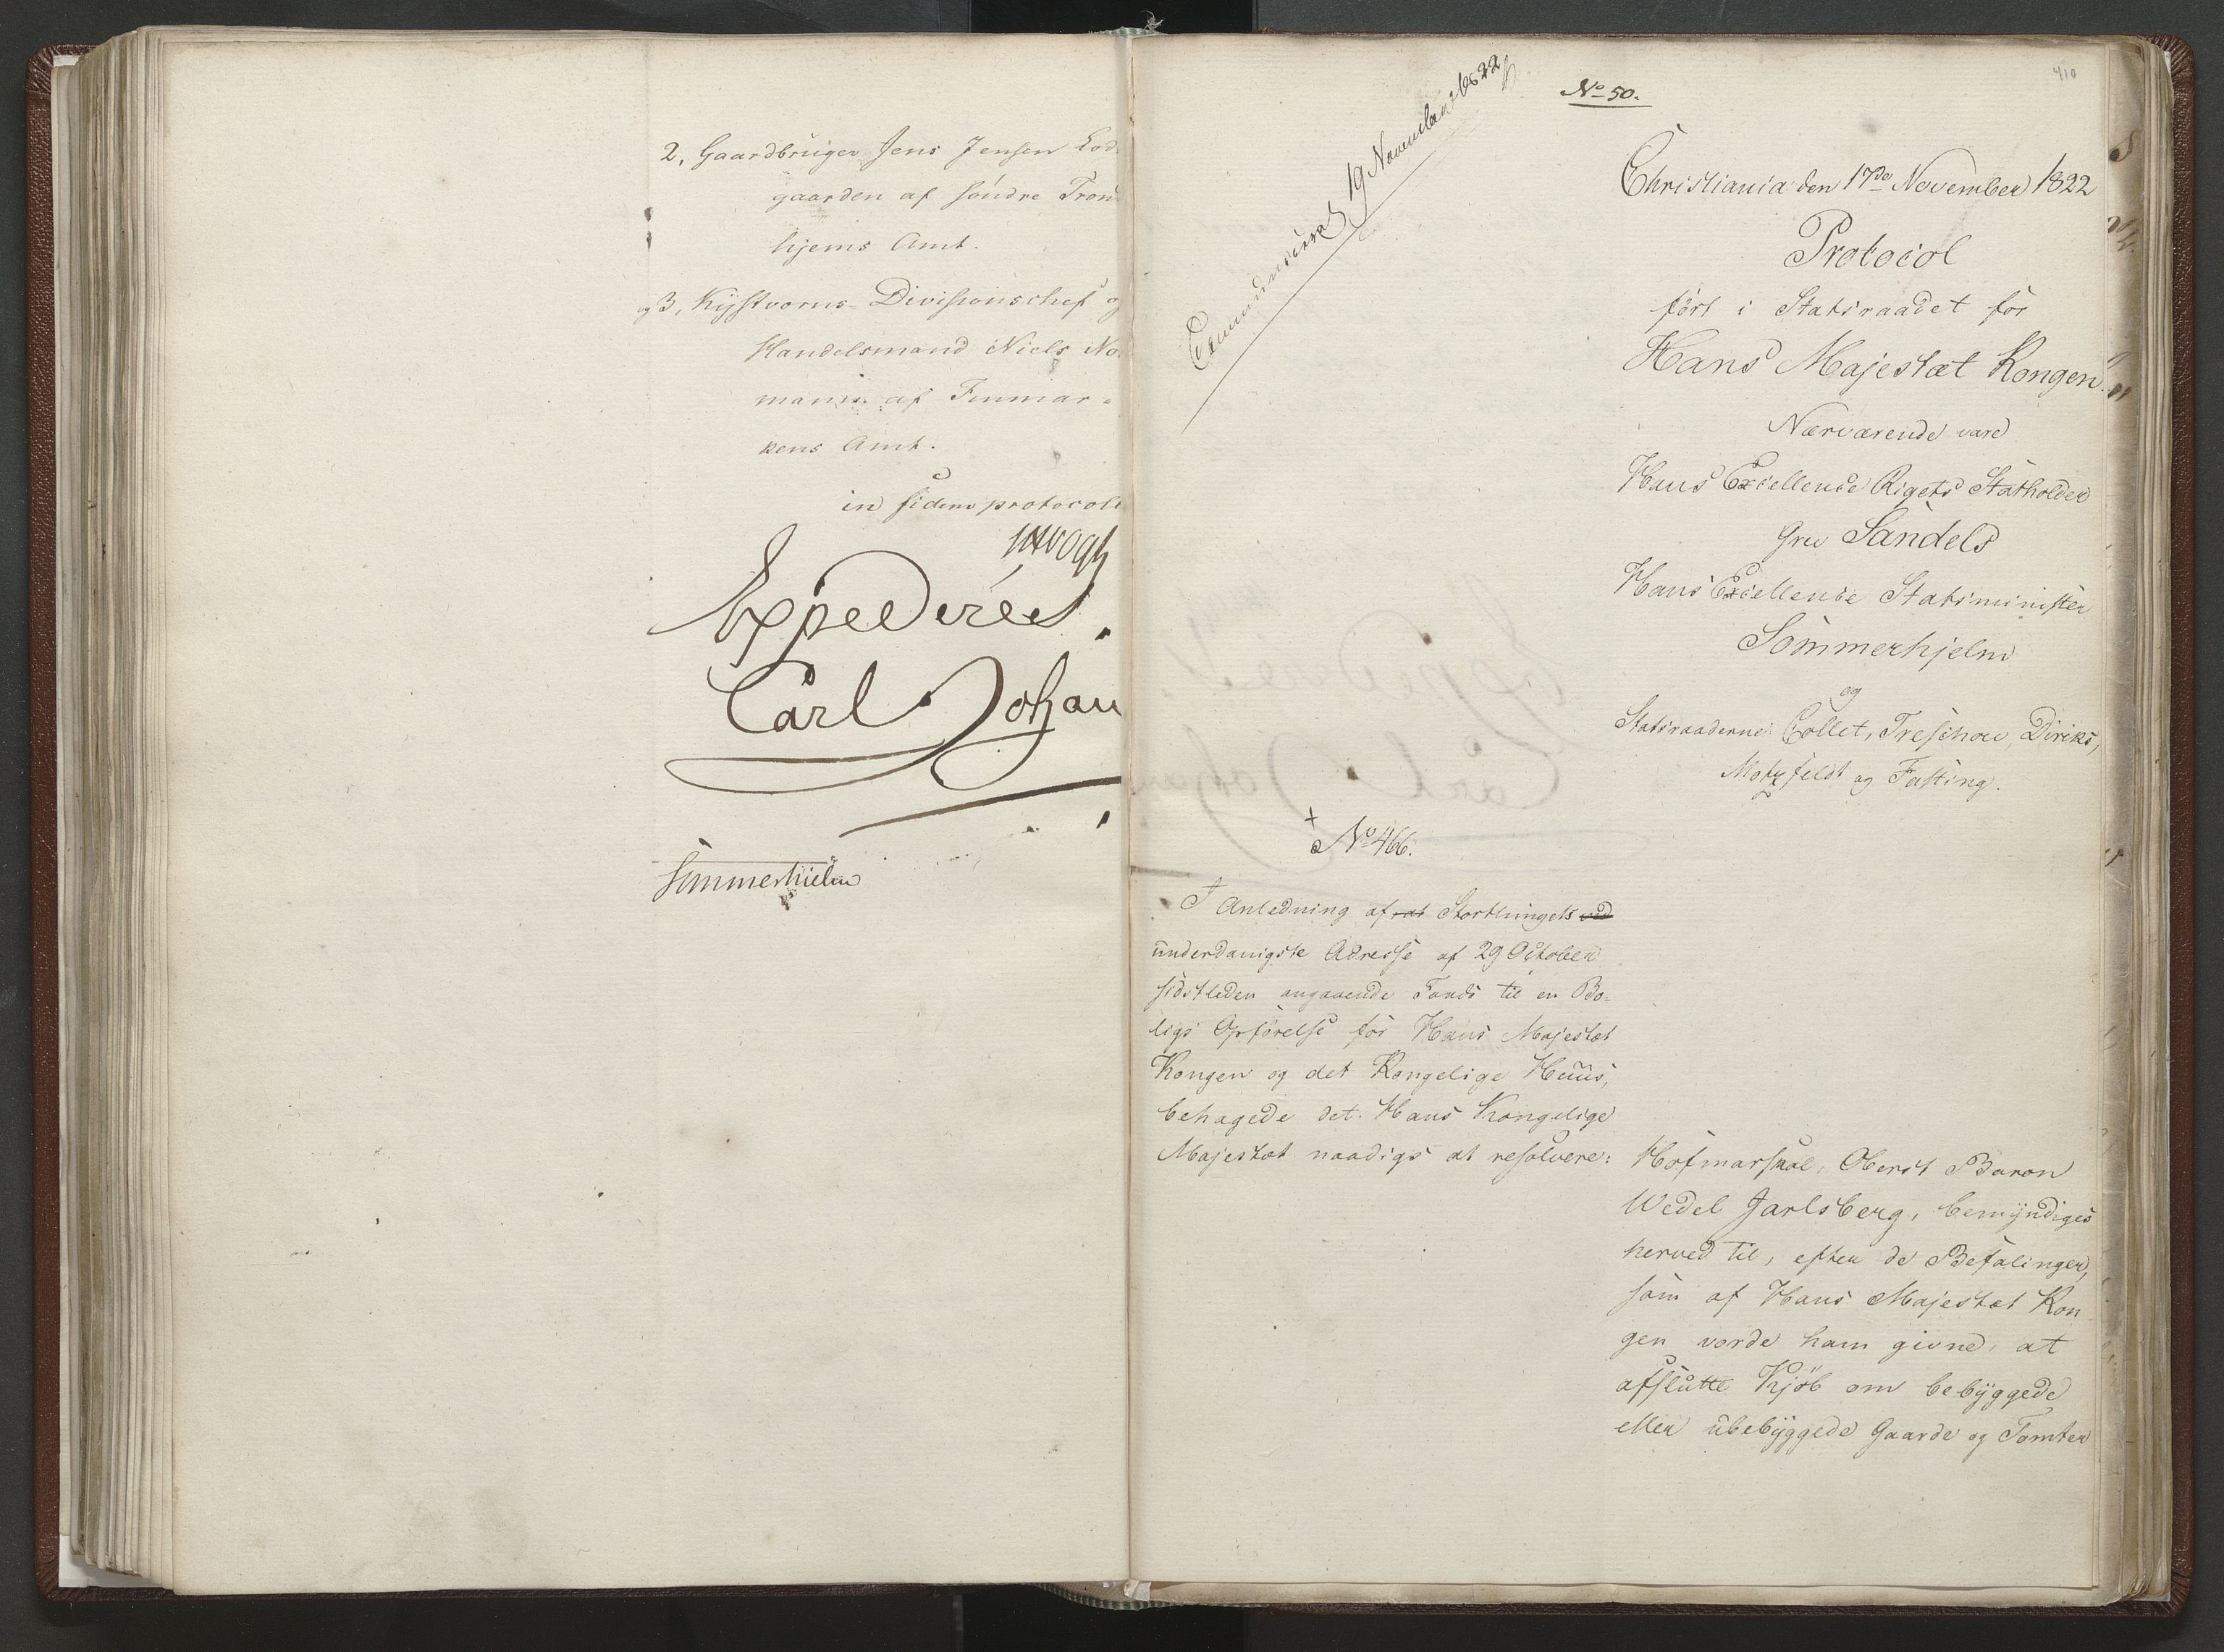 2, Gaardbruger Jens Jensen Lod
gaarden af söndre Tron
hjems Amt.
og 3, Kystvorns-Divisionschef og
Handelsmand Niels No
mann af Finmar=
kens Amt.
in fidem protocolli
Expederes.
Carl Johan
Sommerhielm
410
No 50.
19 November 1822
Christiania den 17de November 1822
Protocol
fört i Statsraadet for
Hans Majestæt Kongen.
Nærværende vare
Hans Excellence Rigets Statholder
Grev Sandels
Hans Excellence Statsminister
Sommerhjelm
og
Statsraaderne Collet, Treschow, Diriks,
Motzfeldt og Fasting.
+
No 466.
I Anledning af at Storthingets ved
underdanigste Adresse af 29 October
sidstleden angaaende Fonds til en Bo=
ligs Opförelse for Hans Majestæt
Kongen og det Kongelige Huus,
behagede det Hans Kongelige
Majestæt naadigst at resolvere:
Hofmarskal, Oberst Baron
Wedel Jarlsberg, bemyndiges
herved til, efter de Befalinger,
som af Hans Majestæt Kon
gen vorde ham givne, at
afslutte Kjöb om bebyggede
eller ubebyggede Gaarde og Tomter